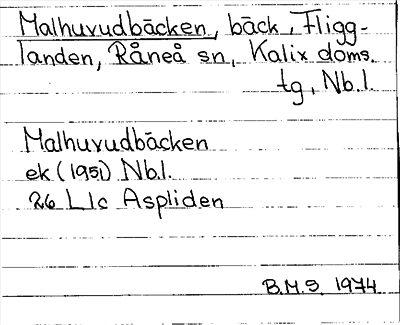 Malhuvudbäcken, bäck, Fligg-
landen, Råneå sn, Kalix doms.
tg, Nb.l.
Malhuvudbäcken
ek (1951) Nb.l.
26 L1c Aspliden
B.M.S. 1974